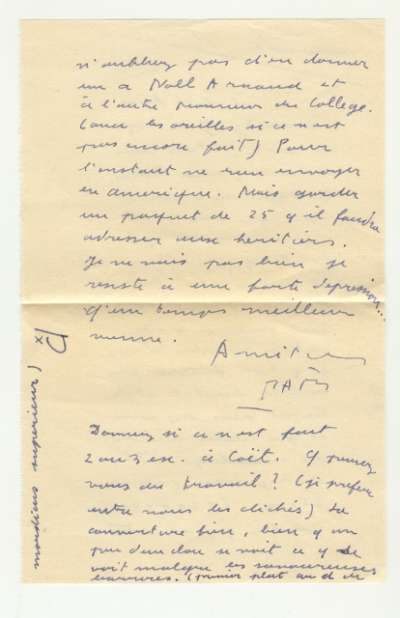 n'oubliez pas d'en donner
un à Noël Arnaud et
à l'autre monsieur du College.
les oreilles si ce n'est
pas encore fait) Pour
l'instant ne rien envoyer
en amérique. Mais garder
un paquet de 25 qu'il faudra
adresser aux heritiers.
Je ne vais pas bien je
resiste à une forte depression...
qu'un temps meilleur
vienne.
Amitiés
Donnez si ce n'est fait
2 ou 3 ex. à Coët.
vous du travail? (je préfère
entre nous les clichés) La
couverture fine, bien qu'un
peu se voit ce
voit malgre les savoureuses
(premier plat
monsieur superieur)